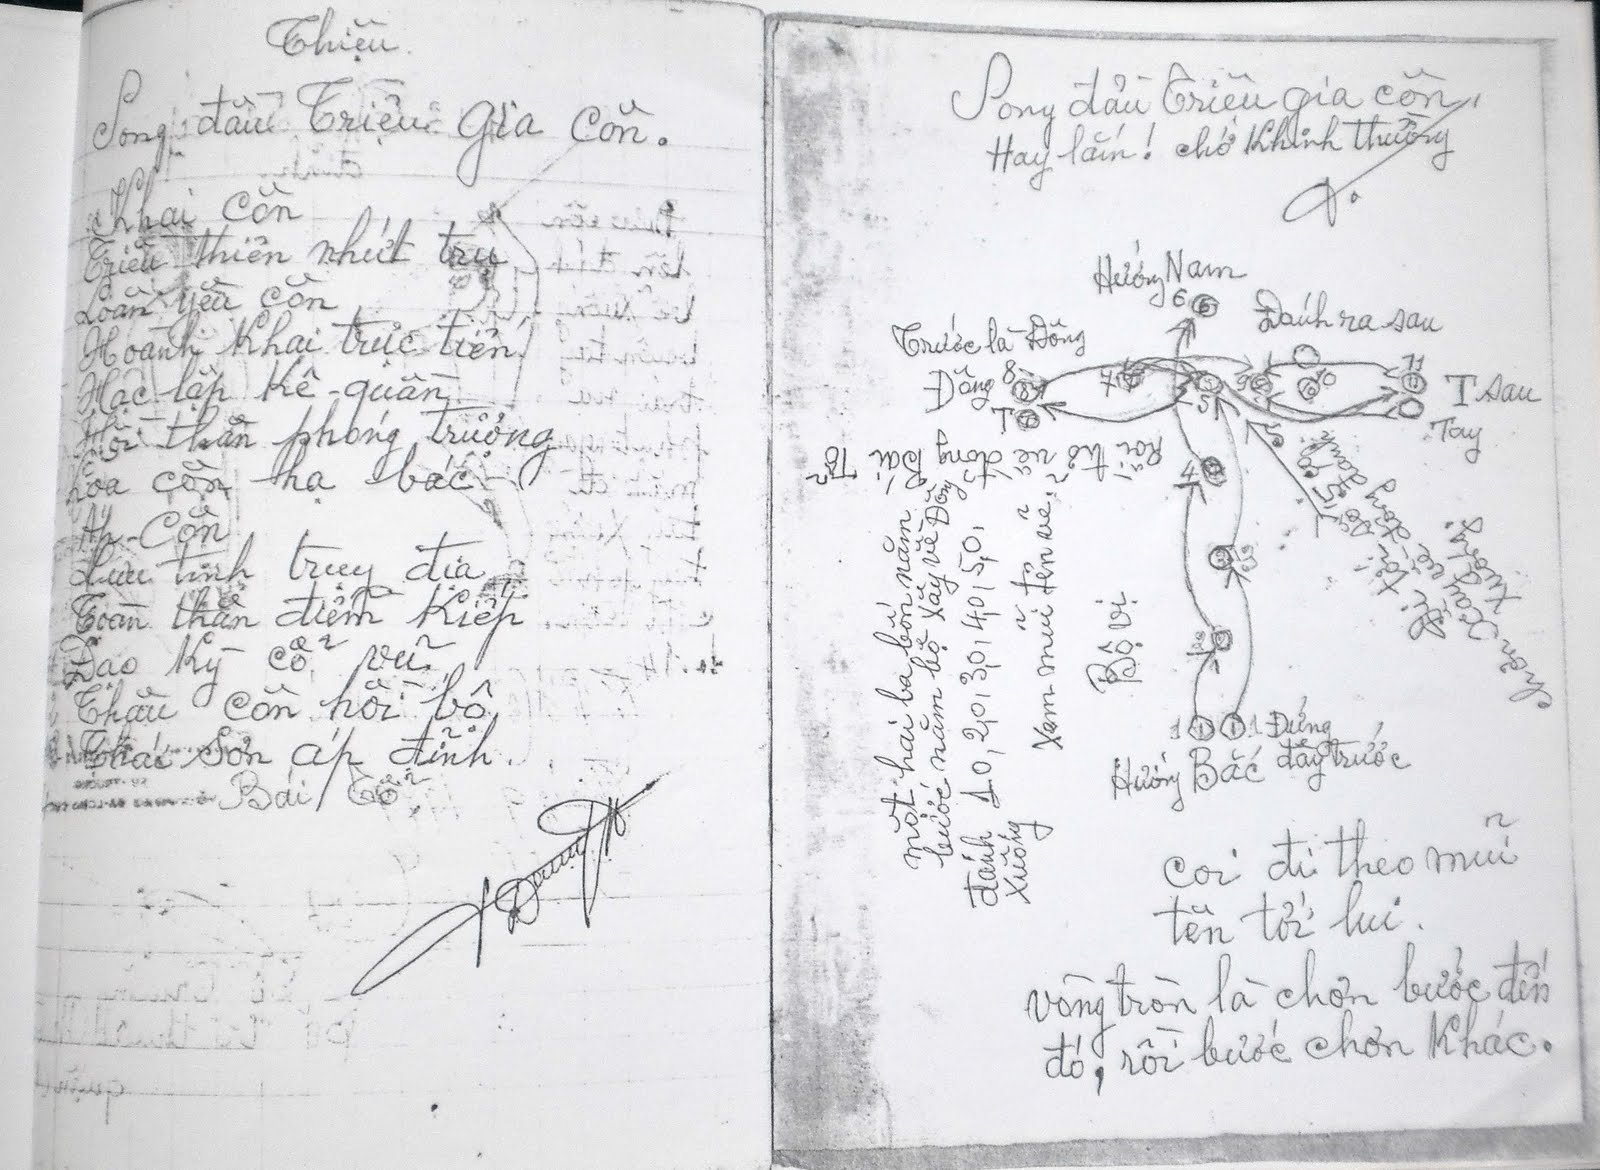 Thiệu.
Song đầu Triệu gia côn.
Khai côn
Triều thiên nhứt trụ
Loan yêu côn
Hoành Khai trực tiến
Hạc lập Kê-quần
Hồi thân phóng trưởng
Hỏa côn hạ bác
Án-Côn
Lưu tinh truy địa
Toàn thân điểm Kiếp
Đao Kỳ cổ vũ
Thâu côn hồi bộ
Thái Sơn áp đỉnh.
Bái Tổ
Song đầu Triệu gia côn
Hay lắm! chớ Khinh thường
Hướng Nam
6
Đánh ra sau
Trước là Đông
Đông 8
7
5
9
10
11
T sau
Tay
T
Bái Tổ
Rồi trở về đóng
4
3
2
một hai ba bốn năm
bước năm bộ xây về Đông
đánh 10, 20, 30, 40, 50,
xuống
Xem mũi tên vẽ
Bộ vị
1 1 1 1 Đứng
Hướng Bắc đây trước
coi đi theo mũi
tên tới lui.
vòng tròn là chơn bước đến
đó, rồi bước chơn Khác.